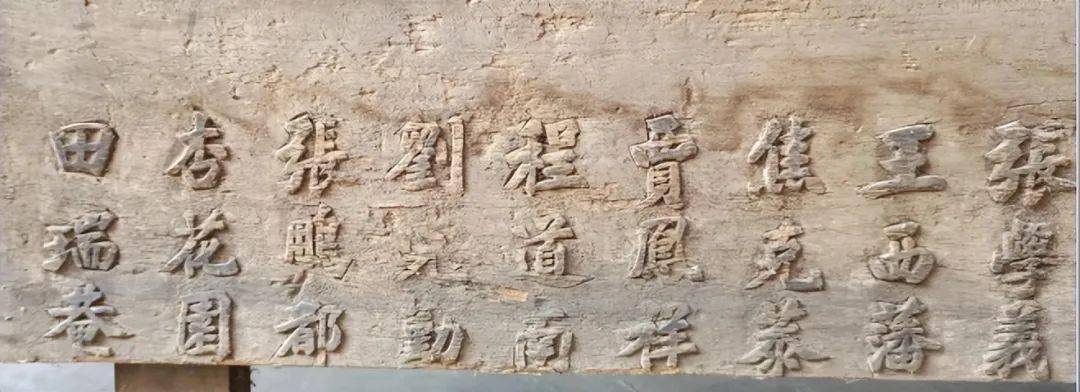 張學義
王西藩
焦克
賈鳳祥
程道南
劉勤
張鵬都
杏花園
田瑞菴